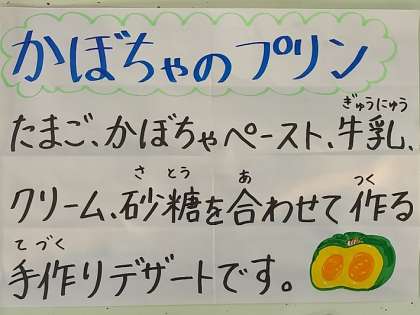 かぼちゃのプリン
ぎゅうにゅう
たまご、かぼちゃペースト、牛乳、
さとう あ つく
クリーム、砂糖を合わせて作る
てづく
手作りデザートです。